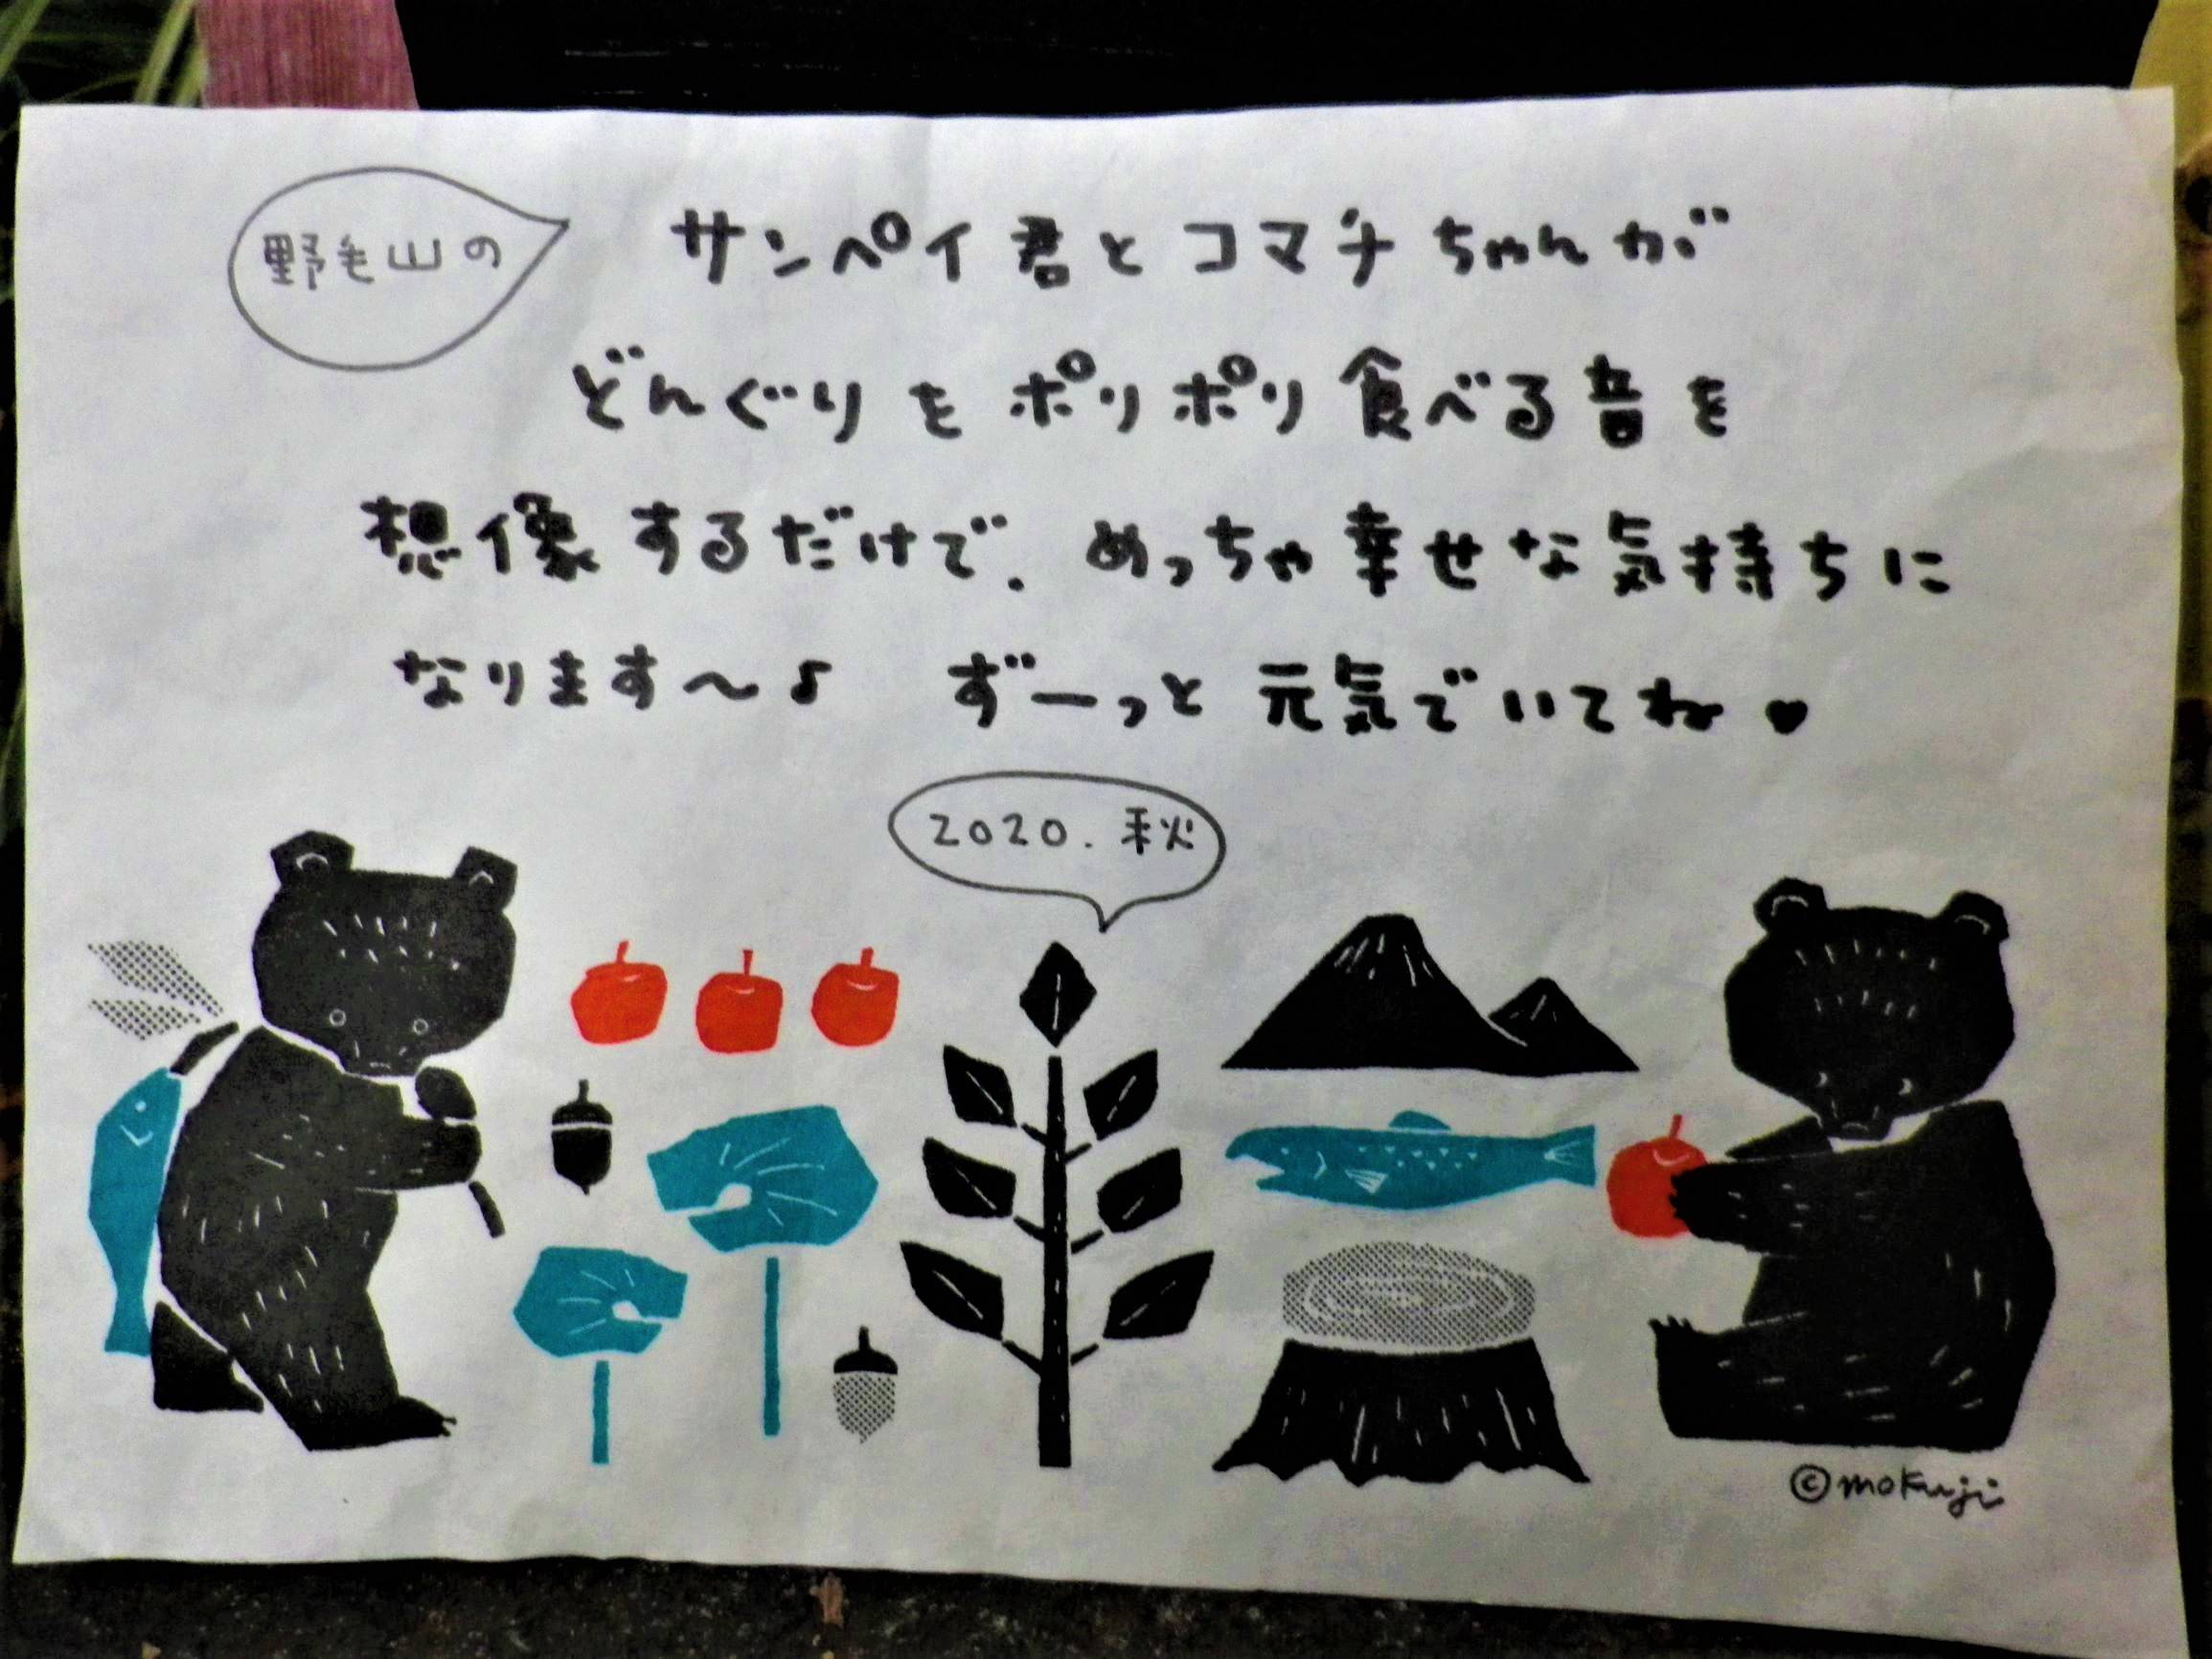 野毛山の
サンペイ君とコマチちゃんが
どんぐりをポリポリ食べる音を
想像するだけで、めっちゃ幸せな気持ちに
なります〜♪ ずーっと元気でいてね♥
2020.秋
©mokuji